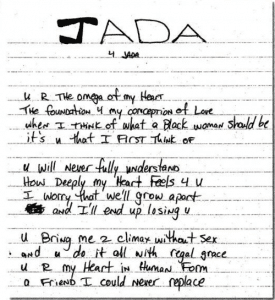 JADA
4 JADA
U R THE omega of my Heart
THE foundation 4 my conception of Love
when I THink of what a Black woman should be
it's u that I First Think of
u will never fully understand
How Deeply my Heart Feels 4 U
I worry that we'll grow apart
and I'll end up losing u
u Bring me 2 climax without sex
and u do it all with regal grace
u R my Heart in Human Form
a Friend I could never replace